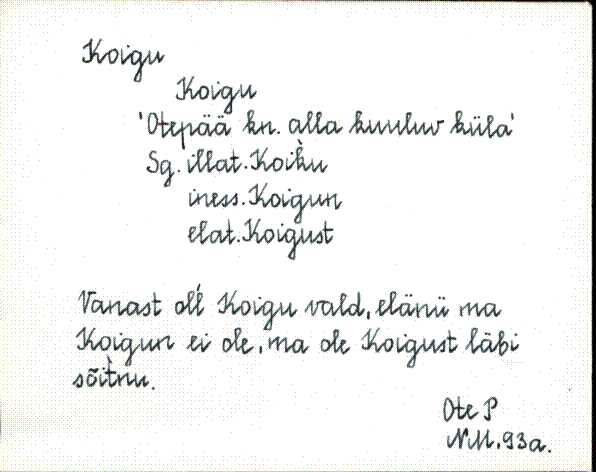 Koigu
Koigu
'Otepää kn. alla kuuluv küla'
Sg. illat. Koik̀u
iness. Koigun
elat. Koigust
Vanast olĺ Koigu vald, elänü ma
Koigun ei ole, ma ole Koigust läbi
sõit̀nu.
Ote P
N.M. 93a.